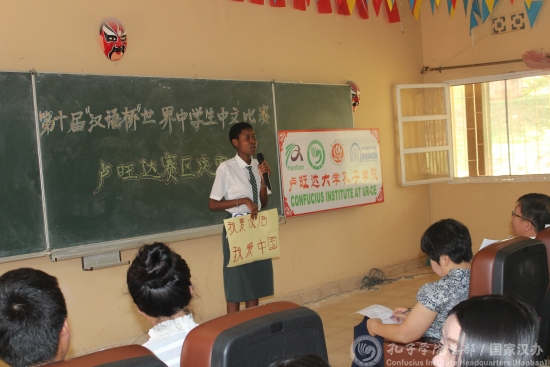 第十届"汉语桥"世界中学生中文比赛
卢旺达赛区决赛
卢旺达大学孔子学院
CONFUCIUS INSTITUTE AT UR-CE
我爱汉语
我爱中国
孔子学院总部/国家汉办
Confucius Institute Headquarters(Hanban)